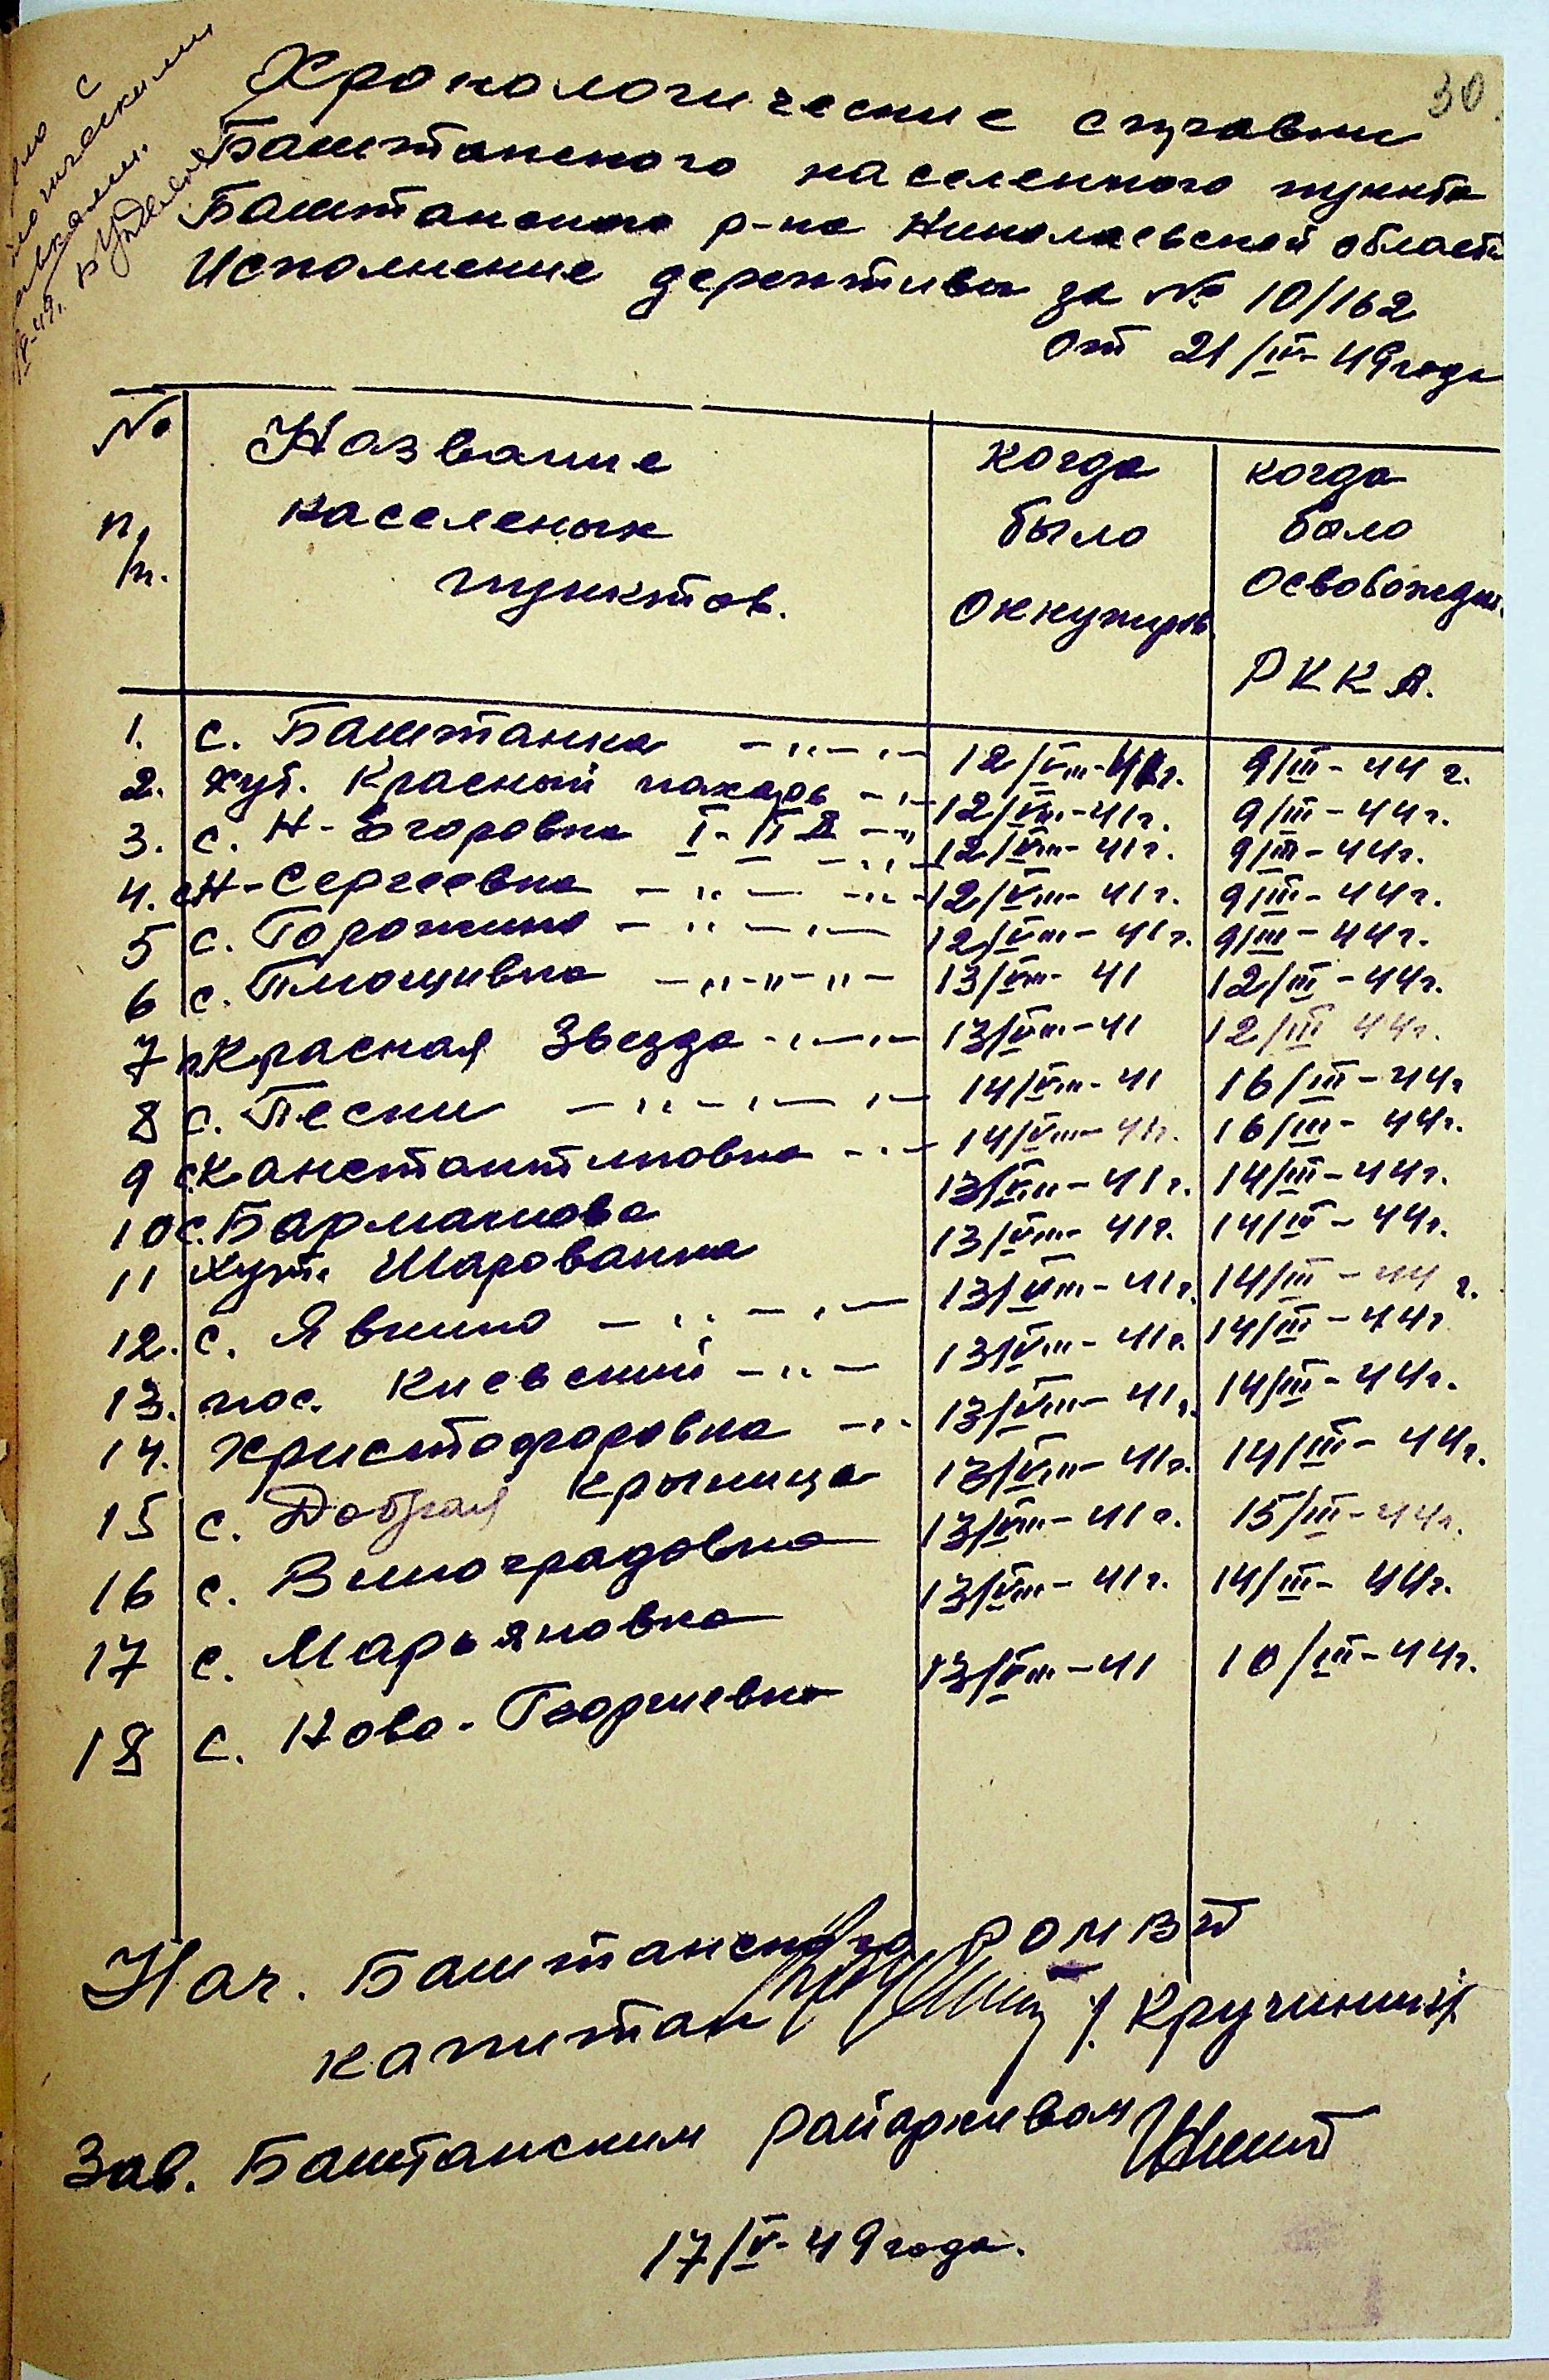 30
Хронологические справки
Баштанского населенного пункта
Баштанского р-на Николаевской области
Исполнение дерективы за № 10/162
от 21/III-49 года
№ п/п. Название населеных пунктов. когда было оккупиров когда было освобожден. РККА.
1. с. Баштанка -"-"- 12/VIII-41г. 9/III-44 г.
2. хут. Красный пахарь -"- 12/VIII-41г. 9/III-44г.
3. с. Н-Егоровка I-II -" 12/VIII-41г. 9/III-44г.
4. с Н-Сергеевка -"- -"- 12/VIII-41г. 9/III-44г.
5 с. Горожино -"-"- 12/VIII-41г. 9/III-44г.
6 с. Плющивка -"-"-"- 13/VIII-41 12/III-44г.
7 Красная Звезда -"-"- 13/VIII-41 12/III 44г.
8 с. Пески -"-"-"- 14/VIII-41 16/III-44г
9 с. Канстантиновка -"- 14/VIII-41г. 16/III-44г.
10 с. Бармашова 13/VIII-41г. 14/III-44г.
11 хут. Шарованка 13/VIII-41г. 14/III-44г.
12. с. Явкино -"-"- 13/VIII-41г. 14/III-44 г.
13. пос. Киевский -"- 13/VIII-41г. 14/III-44г
14. Христофоровка -" 13/VIII-41г. 14/III-44г.
15 с. Добрая Крыница 13/VIII-41г. 14/III-44г.
16 с. Виноградовка 13/VIII-41г. 15/III-44г.
17 с. Марьяновка 13/VIII-41г. 14/III-44г.
18 с. Ново-Георгиевка 13/VIII-41 10/III-44г.
Нач. Баштанского РОМВД
капитан / Кручинин /
Зав. Баштанским райархивом
17/V-49 года.